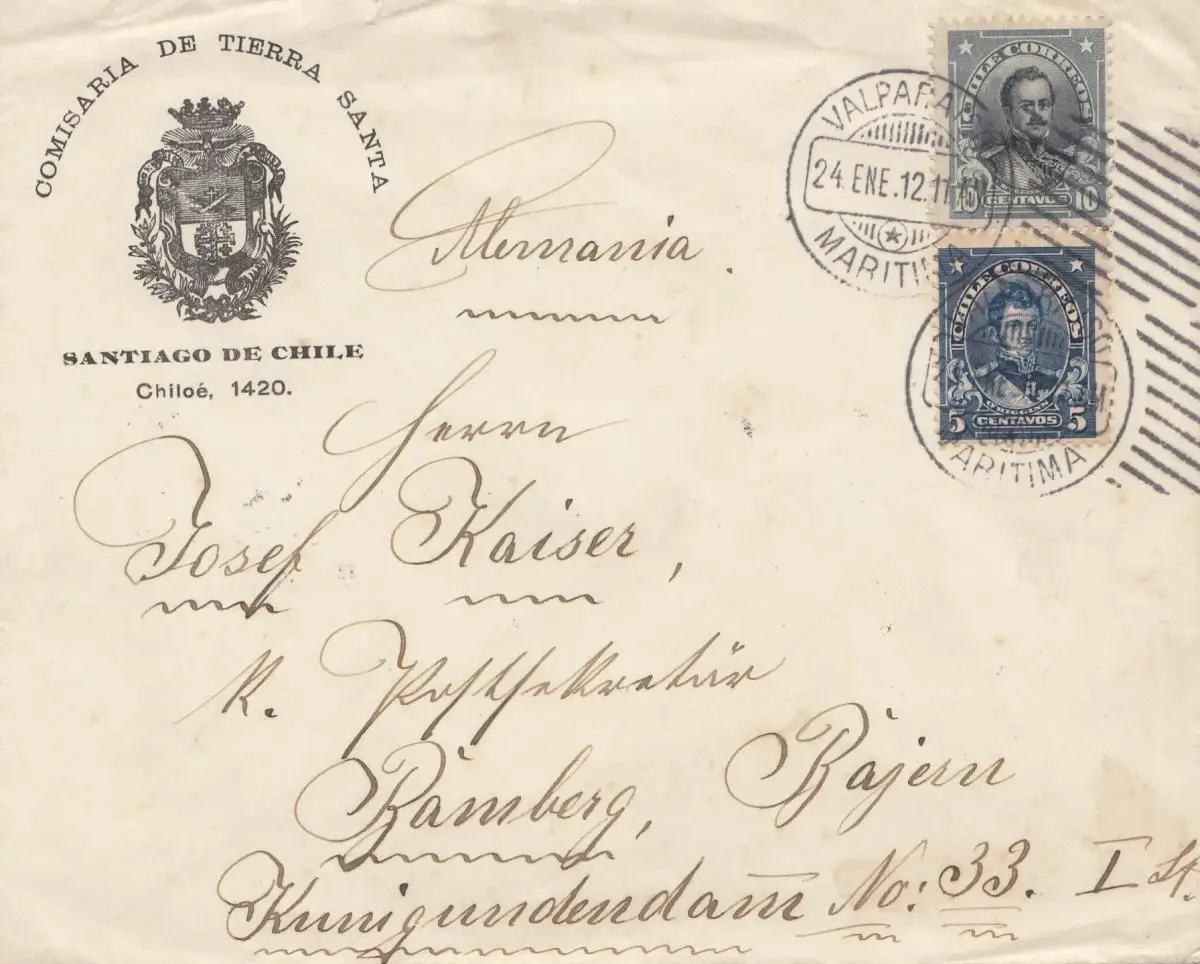 COMISARIA DE TIERRA SANTA
SANTIAGO DE CHILE
Chiloé, 1420.
VALPARAI
24. ENE. 12. 11 AM
MARITIMA
CHILE CORREOS
10 CENTAVOS 10
CHILE CORREOS
O'HIGGINS
5 CENTAVOS 5
MARITIMA
Alemania.
Herrn
Josef Kaiser,
K. Postsekretär
Bamberg, Bajern
Kunigundendam̅ No: 33. I St.